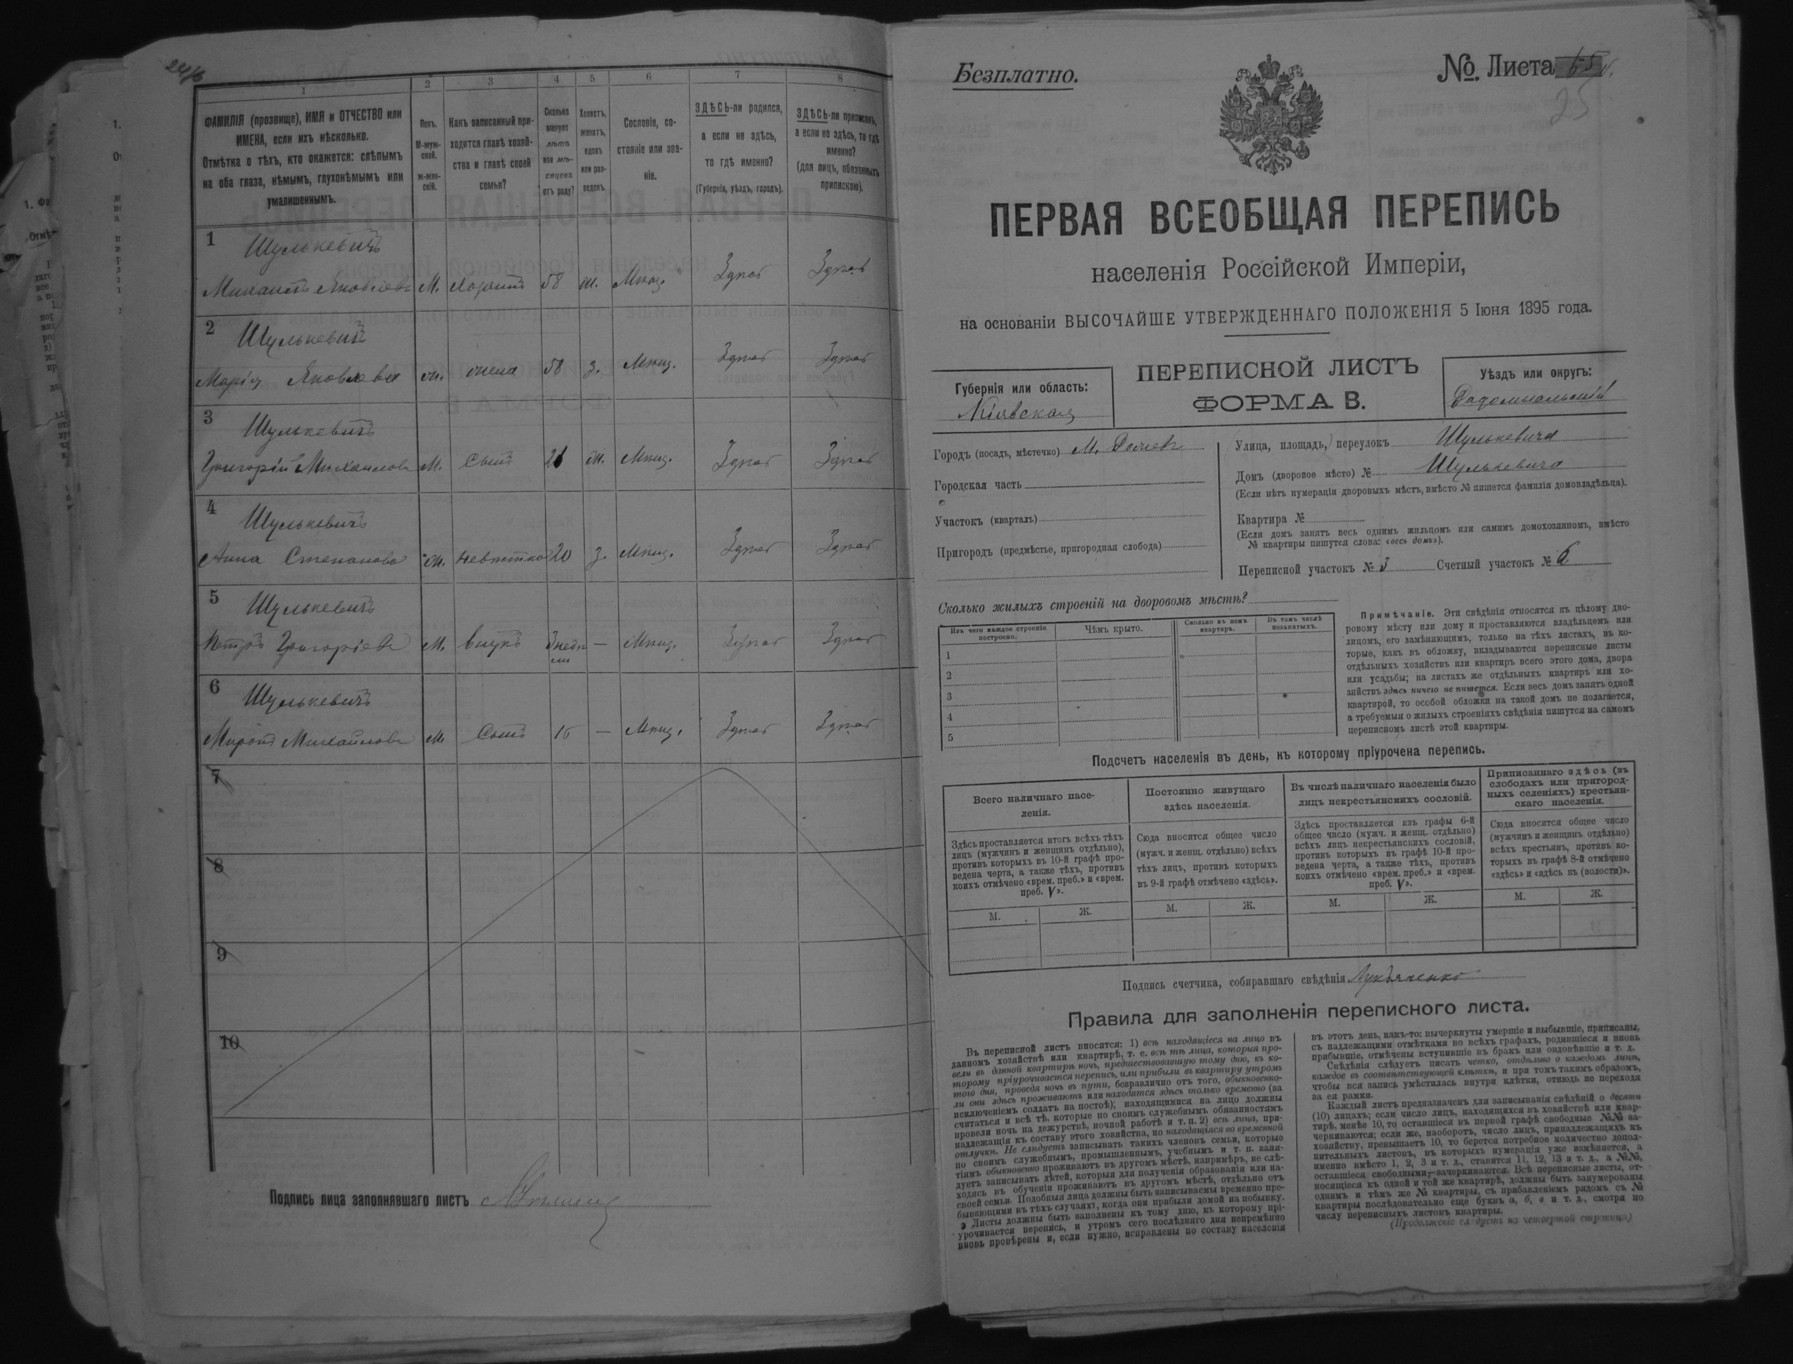 1
2
3
4
5
6
7
8
ФАМИЛІЯ (прозвище), ИМЯ и ОТЧЕСТВО или
ИМЕНА, если ихъ нѣсколько.
Отмѣтка о тѣхъ, кто окажется: слѣпымъ
на оба глаза, нѣмымъ, глухонѣмымъ или
умалишеннымъ.
Полъ.
М-муж-
ской.
ж-жен-
скій.
Какъ записанный при-
ходится главѣ хозяй-
ства и главѣ своей
семьи?
Сколько
минуло
лѣтъ
или мѣ-
сяцевъ
отъ роду?
Холостъ,
женатъ,
вдовъ
или раз-
веденъ.
Сословіе, со-
стояніе или зва-
ніе.
ЗДѢСЬ-ли родился,
а если не здѣсь,
то гдѣ именно?
(Губернія, уѣздъ, городъ).
ЗДѢСЬ-ли приписанъ,
а если не здѣсь, то гдѣ
именно?
(для лицъ, обязанныхъ
припискою).
1 Шулькевичъ
Михаилъ Яковлевъ М. хозяинъ 58 ж. Мѣщ. Здѣсь Здѣсь
2 Шулькевичъ
Марія Яковлева ж. жена 58 з. Мѣщ. Здѣсь Здѣсь
3 Шулькевичъ
Григорій Михаиловъ М. сынъ ж. Мѣщ. Здѣсь Здѣсь
4 Шулькевичъ
Анна Степанова ж. невѣстка 20 з. Мѣщ. Здѣсь Здѣсь
5 Шулькевичъ
Петръ Григоріевъ М. внукъ — Мѣщ. Здѣсь Здѣсь
6 Шулькевичъ
Миронъ Михайловъ М. сынъ — Мѣщ. Здѣсь Здѣсь
7
8
9
10
Подпись лица заполнявшаго листъ
Безплатно.
№ Листа
25
ПЕРВАЯ ВСЕОБЩАЯ ПЕРЕПИСЬ
населенія Россійской Имперіи,
на основаніи ВЫСОЧАЙШЕ УТВЕРЖДЕННАГО ПОЛОЖЕНІЯ 5 Іюня 1895 года.
Губернія или область:
Кіевская
ПЕРЕПИСНОЙ ЛИСТЪ
ФОРМА В.
Уѣздъ или округъ:
Радомысльскій
Городъ (посадъ, мѣстечко) М.
Городская часть
Участокъ (кварталъ)
Пригородъ (предмѣстье, пригородная слобода)
Улица, площадь, переулокъ Шулькевича
Домъ (дворовое мѣсто) № Шулькевича
(Если нѣтъ нумераціи дворовыхъ мѣстъ, вмѣсто № пишется фамилія домовладѣльца).
Квартира №
(Если домъ занятъ весь однимъ жильцомъ или самимъ домохозяиномъ, вмѣсто
№ квартиры пишутся слова: «весь домъ»).
Переписной участокъ № 3 Счетный участокъ № 6
Сколько жилыхъ строеній на дворовомъ мѣстѣ?
Изъ чего каждое строеніе
построено.
Чѣмъ крыто.
Сколько въ немъ
квартиръ.
Въ томъ числѣ
незанятыхъ.
1
2
3
4
5
Примѣчаніе. Эти свѣдѣнія относятся къ цѣлому дво-
ровому мѣсту или дому и проставляются владѣльцемъ или
лицомъ, его замѣняющимъ, только на тѣхъ листахъ, въ ко-
торые, какъ въ обложку, вкладываются переписные листы
отдѣльныхъ хозяйствъ или квартиръ всего этого дома, двора
или усадьбы; на листахъ же отдѣльныхъ квартиръ или хо-
зяйствъ здѣсь ничего не пишется. Если весь домъ занятъ одной
квартирой, то особой обложки на такой домъ не полагается,
а требуемыя о жилыхъ строеніяхъ свѣдѣнія пишутся на самомъ
переписномъ листѣ этой квартиры.
Подсчетъ населенія въ день, къ которому пріурочена перепись.
Всего наличнаго насе-
ленія.
Постоянно живущаго
здѣсь населенія.
Въ числѣ наличнаго населенія было
лицъ некрестьянскихъ сословій.
Приписаннаго здѣсь (въ
слободахъ или пригород-
ныхъ селеніяхъ) крестьян-
скаго населенія.
Здѣсь проставляется итогъ всѣхъ тѣхъ
лицъ (мужчинъ и женщинъ отдѣльно),
противъ которыхъ въ 10-й графѣ про-
ведена черта, а также тѣхъ, противъ
коихъ отмѣчено «врем. преб.» и «врем.
преб. V».
Сюда вносится общее число
(мужч. и женщ. отдѣльно) всѣхъ
тѣхъ лицъ, противъ которыхъ
въ 9-й графѣ отмѣчено «здѣсь».
Здѣсь проставляется изъ графы 6-й
общее число (мужч. и женщ. отдѣльно)
всѣхъ лицъ некрестьянскихъ сословій,
противъ которыхъ въ графѣ 10-й про-
ведена черта, а также тѣхъ, противъ
коихъ отмѣчено «врем. преб.» и «врем.
преб. V».
Сюда вносится общее число
(мужчинъ и женщинъ отдѣльно)
всѣхъ крестьянъ, противъ ко-
торыхъ въ графѣ 8-й отмѣчено
«здѣсь» и «здѣсь къ (волости)».
М. Ж. М. Ж. М. Ж. М. Ж.
Подпись счетчика, собиравшаго свѣдѣнія Лукьяненко
Правила для заполненія переписного листа.
Въ переписной листъ вносятся: 1) всѣ находящіеся на лицо въ
данномъ хозяйствѣ или квартирѣ, т. е. всѣ тѣ лица, которыя про-
вели въ данной квартирѣ ночь, предшествовавшую тому дню, къ ко-
торому пріурочивается перепись, или прибыли въ квартиру утромъ
того дня, проведя ночь въ пути, безразлично отъ того, обыкновенно-
ли они здѣсь проживаютъ или находятся здѣсь только временно (за
исключеніемъ солдатъ на постоѣ); находящимися на лицо должны
считаться и всѣ тѣ, которые по своимъ служебнымъ обязанностямъ
провели ночь на дежурствѣ, ночной работѣ и т. п. 2) всѣ лица, при-
надлежащія къ составу этого хозяйства, но находящіяся во временной
отлучкѣ. Не слѣдуетъ записывать такихъ членовъ семьи, которые
по своимъ служебнымъ, промышленнымъ, учебнымъ и т. п. заня-
тіямъ обыкновенно проживаютъ въ другомъ мѣстѣ, напримѣръ, не слѣ-
дуетъ записывать дѣтей, которыя для полученія образованія или на-
ходясь въ обученіи проживаютъ въ другомъ мѣстѣ, отдѣльно отъ
своей семьи. Подобныя лица должны быть записываемы временно пре-
бывающими въ тѣхъ случаяхъ, когда они прибыли домой на побывку.
Листы должны быть заполнены къ тому дню, къ которому прі-
урочивается перепись, и утромъ сего послѣдняго дня непремѣнно
вновь провѣрены и, если нужно, исправлены по составу населенія
въ этотъ день, какъ-то: вычеркнуты умершіе и выбывшіе, приписаны,
съ надлежащими отмѣтками во всѣхъ графахъ, родившіеся и вновь
прибывшіе, отмѣчены вступившіе въ бракъ или овдовѣвшіе и т. д.
Свѣдѣнія слѣдуетъ писать четко, отдѣльно о каждомъ лицѣ,
каждое въ соотвѣтствующей клѣткѣ, и при томъ такимъ образомъ,
чтобы вся запись умѣстилась внутри клѣтки, отнюдь не переходя
за ея рамки.
Каждый листъ предназначенъ для записыванія свѣдѣній о десяти
(10) лицахъ; если число лицъ, находящихся въ хозяйствѣ или квар-
тирѣ, менѣе 10, то оставшіеся въ первой графѣ свободные №№ за-
черкиваются; если же, наоборотъ, число лицъ, принадлежащихъ къ
хозяйству, превышаетъ 10, то берется потребное количество допол-
нительныхъ листовъ, въ которыхъ нумерація уже измѣняется, а
именно вмѣсто 1, 2, 3 и т. д., ставится 11, 12, 13 и т. д., а №№,
оставшіеся свободными—зачеркиваются. Всѣ переписные листы, от-
носящіеся къ одной и той же квартирѣ, должны быть занумерованы
однимъ и тѣмъ же № квартиры, съ прибавленіемъ рядомъ съ №
квартиры послѣдовательно еще буквъ а, б, в и т. д., смотря по
числу переписныхъ листовъ квартиры.
(Продолженіе слѣдуетъ на четвертой страницѣ)